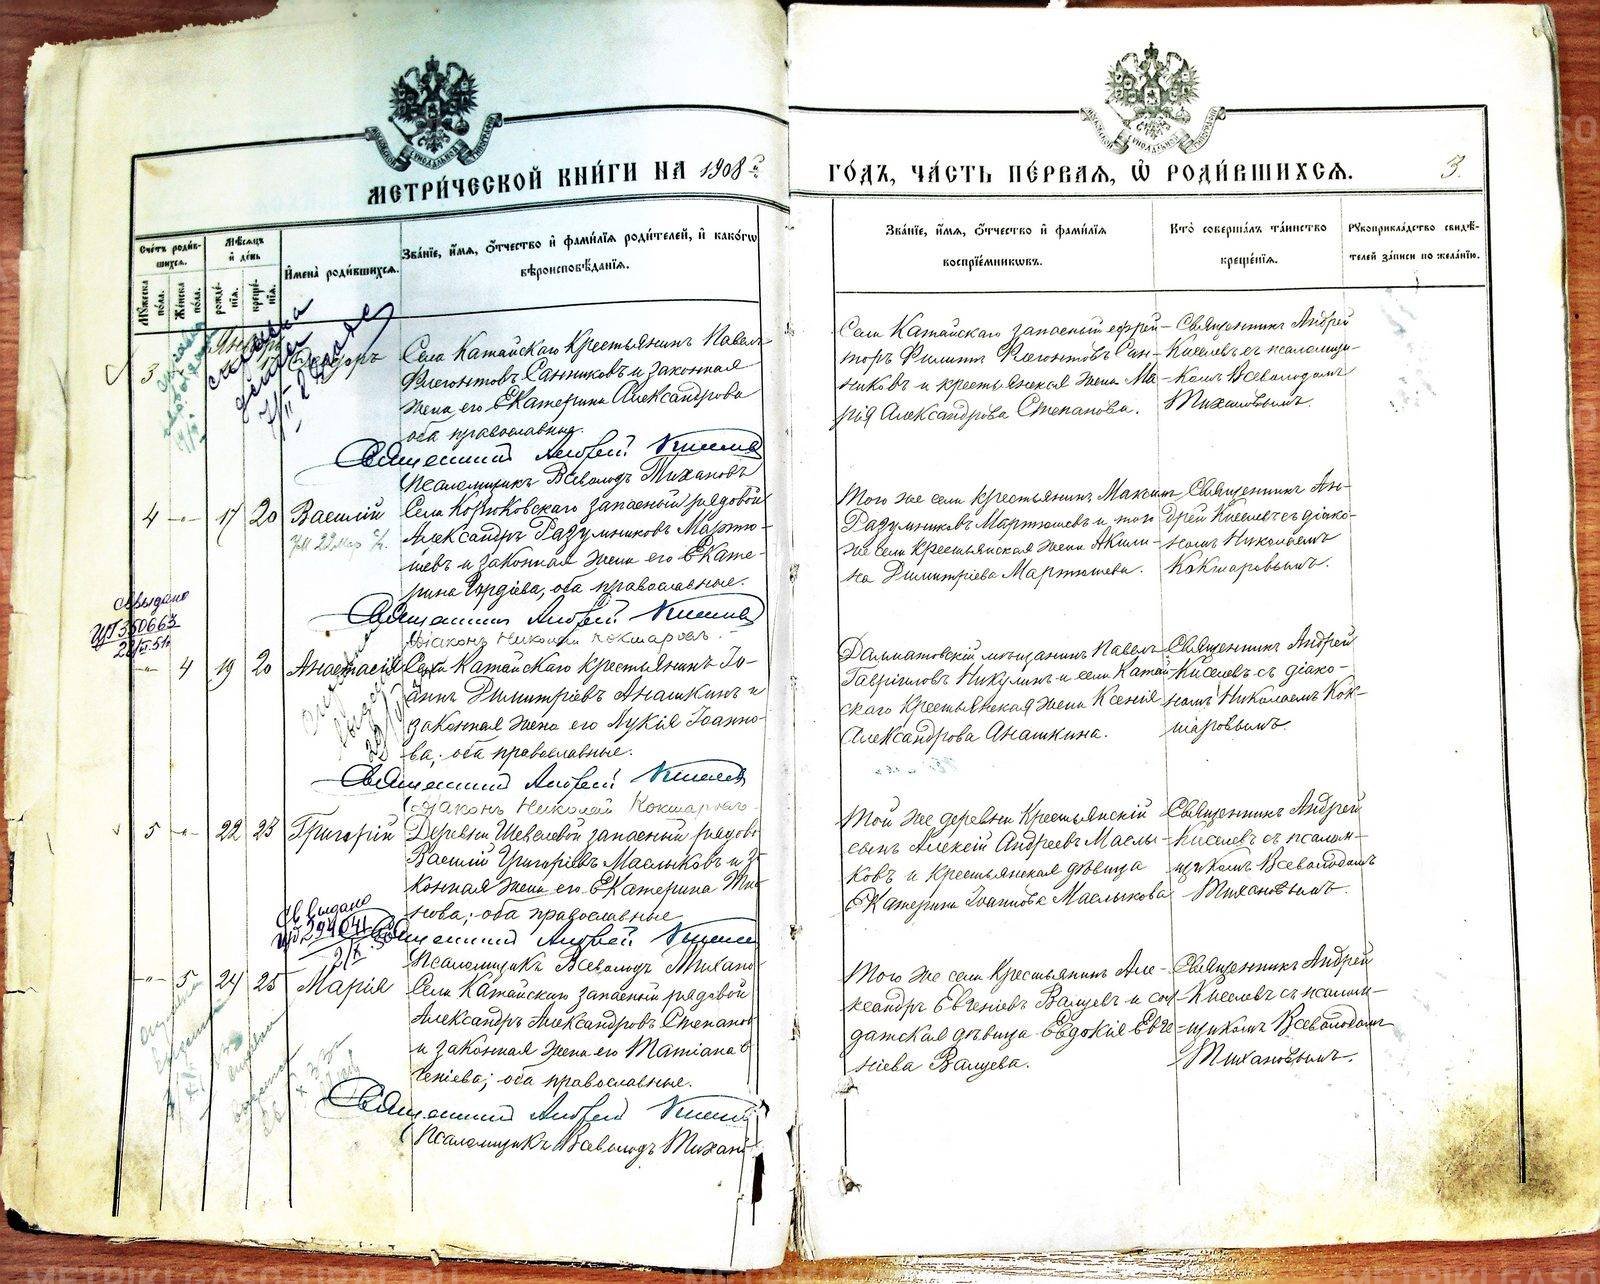 МЕТРИ́ЧЕСКОЙ КНИ́ГИ НА 1908 й
ГО́ДЪ, ЧА́СТЬ ПЕ́РВАЯ, Ѡ҆ РОДИ́ВШИХСЯ.
3.
Сче́тъ роди́в-
шихся.
Мꙋ́жеска по́ла.
Же́нска по́ла.
Мѣ́сяцъ и҆ де́нь
рожде́-
нїя.
креще́-
нїя.
И҆мена̀ роди́вшихся.
Зва́нїе, и҆́мя, ѻ҆́тчество и҆ фами́лїя роди́телей, и҆ како́гѡ
вѣроисповѣ́данїя.
Зва́нїе, и҆́мя, ѻ҆́тчество и҆ фами́лїя
воспрїе́мникѡвъ.
Кто̀ соверша́лъ та́инство
креще́нїя.
Рꙋкоприкла́дство свидѣ́-
телей за́писи по жела́нїю.
3
Села Катайскаго крестьянинъ Павелъ
Флегонтовъ Санниковъ и законная
жена его Екатерина Александрова
оба православные.
Священникъ Андрей Киселевъ
Псаломщикъ Всеволодъ Тихановъ
Села Катайскаго запасный ефрей-
торъ Филиппъ Флегонтовъ Сан-
никовъ и крестьянская жена Ма-
рія Александрова Степанова.
Священникъ Андрей
Киселевъ съ псаломщи-
комъ Всеволодомъ
Тихановымъ.
4 -"- 17 20 Василій
Села Корюковскаго запасный рядовой
Александръ Разумниковъ Мартю-
шевъ и законная жена его Екате-
рина Гордіева, оба православные.
Священникъ Андрей Киселевъ
Діаконъ Николай Кокшаровъ.
Того же села крестьянинъ Максимъ
Разумниковъ Мартюшевъ и того
же села крестьянская жена Акили-
на Димитріева Мартюшева.
Священникъ Ан-
дрей Киселевъ съ діако-
номъ Николаемъ
Кокшаровымъ.
Св выдано
350663
-"- 4 19 20 Анастасія
Села Катайскаго крестьянинъ Іо-
аннъ Димитріевъ Анашкинъ и
законная жена его Лукія Іоанно-
ва; оба православные.
Священникъ Андрей Киселевъ
Діаконъ Николай Кокшаровъ
Далматовскій мѣщанинъ Павелъ
Гавріиловъ Никулинъ и села Катай-
скаго крестьянская жена Ксенія
Александрова Анашкина.
Священникъ Андрей
Киселевъ съ діако-
номъ Николаемъ Кок-
шаровымъ.
5 -"- 22 23 Григорій
Деревни Шевелевой запасный рядово
Василій Григоріевъ Маслыковъ и за
конная жена его Екатерина
нова; оба православные
Священникъ Андрей Киселев
Псаломщикъ Всеволодъ Тихано
Той же деревни крестьянскій
сынъ Алексій Андреевъ Маслы-
ковъ и крестьянская дѣвица
Екатерина Іоаннова Маслыкова
Священникъ Андрей
Киселевъ съ псалом-
щикомъ Всеволодомъ
Тихановымъ.
Св выдано
294041
-"- 5 24 25 Марія
Села Катайскаго запасный рядовой
Александръ Александровъ Степанов
и законная жена его Татіана Е
геніева; оба православные.
Священникъ Андрей Киселев
Псаломщикъ Всеволодъ Тихано
Того же села крестьянинъ Але-
ксандръ Евгеніевъ Валуевъ и сол-
датская дѣвица Евдокія Евге-
ніева Валуева.
Священникъ Андрей
Киселевъ съ псалом-
щикомъ Всеволодомъ
Тихановымъ.